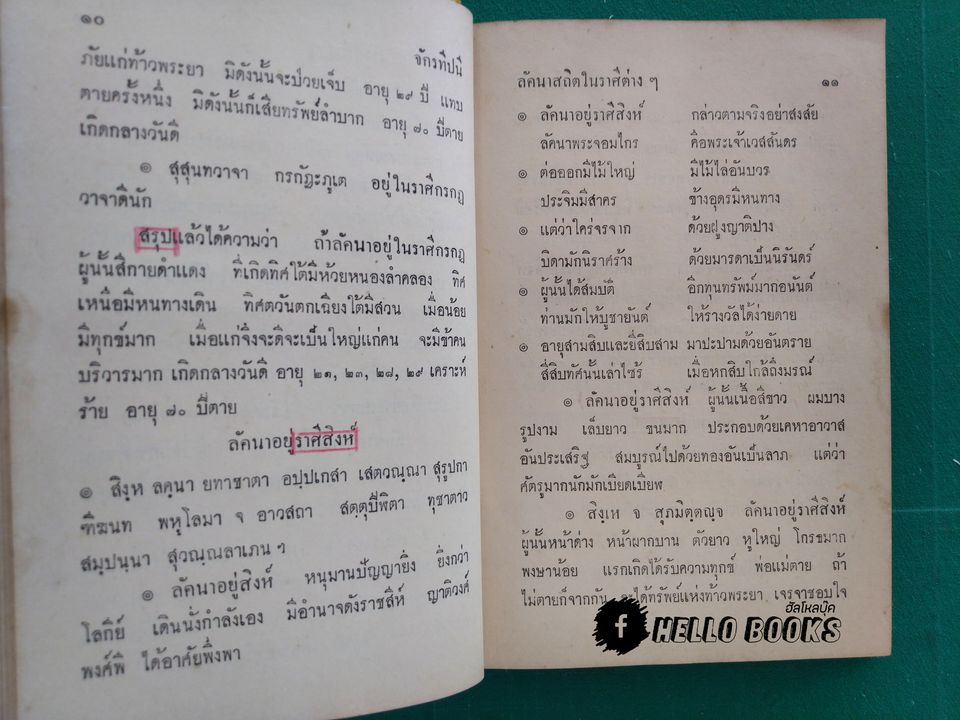 ๑๐
จักรทีปนี
ภัยแก่ท้าวพระยา มิดังนั้นจะป่วยเจ็บ อายุ ๒๙ ปี แทบ
ตายครั้งหนึ่ง มิดังนั้นก็เสียทรัพย์ลำบาก อายุ ๘๐ ปีตาย
เกิดกลางวันดี
๏ สุสุนทวาจา กรกัฏะภูเต อยู่ในราศีกรกฎ
วาจาดีนัก
สรุปแล้วได้ความว่า ถ้าลัคนาอยู่ในราศีกรกฎ
ผู้นั้นสีกายดำแดง ที่เกิดทิศใต้มีห้วยหนองลำคลอง ทิศ
เหนือมีหนทางเดิน ทิศตวันตกเฉียงใต้มีสวน เมื่อน้อย
มีทุกข์มาก เมื่อแก่จึงจะดีจะเป็นใหญ่แก่คน จะมีข้าคน
บริวารมาก เกิดกลางวันดี อายุ ๒๑, ๒๓, ๒๘, ๒๙ เคราะห์
ร้าย อายุ ๘๐ ปีตาย
ลัคนาอยู่ราศีสิงห์
๏ สิงฺห ลคฺนา ยทาชาตา อปฺปเกสา เสตวณฺณา สุรูปกา
ฑีฆนท พหุโลมา จ อาวสถา สตฺตุปีฬิตา ทุชาตาว
สมฺปนฺนา สุวณฺณลาเภน ฯ
๏ ลัคนาอยู่สิงห์ หนุมานปัญญายิ่ง ยิ่งกว่า
โลกีย์ เดินนั่งกำลังเอง มีอำนาจดังราชสีห์ ญาติวงศ์
พงศ์พี ได้อาศัยพึ่งพา
ลัคนาสถิตในราศีต่าง ๆ ๑๑
๏ ลัคนาอยู่ราศีสิงห์ กล่าวตามจริงอย่าสงสัย
ลัคนาพระจอมไกร คือพระเจ้าเวสสันดร
๏ ต่อออกมีไม้ใหญ่ มีไม้ไล่อันบวร
ประจิมมีสาคร ข้างอุดรมีหนทาง
๏ แต่ว่าใคร่จรจาก ด้วยฝูงญาติปาง
บิดามักนิราศร้าง ด้วยมารดาเป็นนิรันดร์
๏ ผู้นั้นได้สมบัติ อีกทุนทรัพย์มากอนันต์
ท่านมักให้บูชายันต์ ให้รางวัลได้ง่ายดาย
๏ อายุสามสิบและยี่สิบสาม มาปะปามด้วยอันตราย
สี่สิบทัศนั้นเล่าไซร้ เมื่อหกสิบใกล้ถึงมรณ์
๏ ลัคนาอยู่ราศีสิงห์ ผู้นั้นเนื้อสีขาว ผมบาง
รูปงาม เล็บยาว ขนมาก ประกอบด้วยเคหาอาวาส
อันประเสริฐ สมบูรณ์ไปด้วยทองอันเป็นลาภ แต่ว่า
ศัตรูมากนักมักเบียดเบียฬ
๏ สิงฺเห จ สุภมิตฺตญฺจ ลัคนาอยู่ราศีสิงห์
ผู้นั้นหน้าด่าง หน้าผากบาน ตัวยาว หูใหญ่ โกรธมาก
พงษาน้อย แรกเกิดได้รับความทุกข์ พ่อแม่ตาย ถ้า
ไม่ตายก็จากกัน จะได้ทรัพย์แห่งท้าวพระยา เจรจาชอบใจ
ฮัลโหลบุ๊ค
f HELLO BOOKS